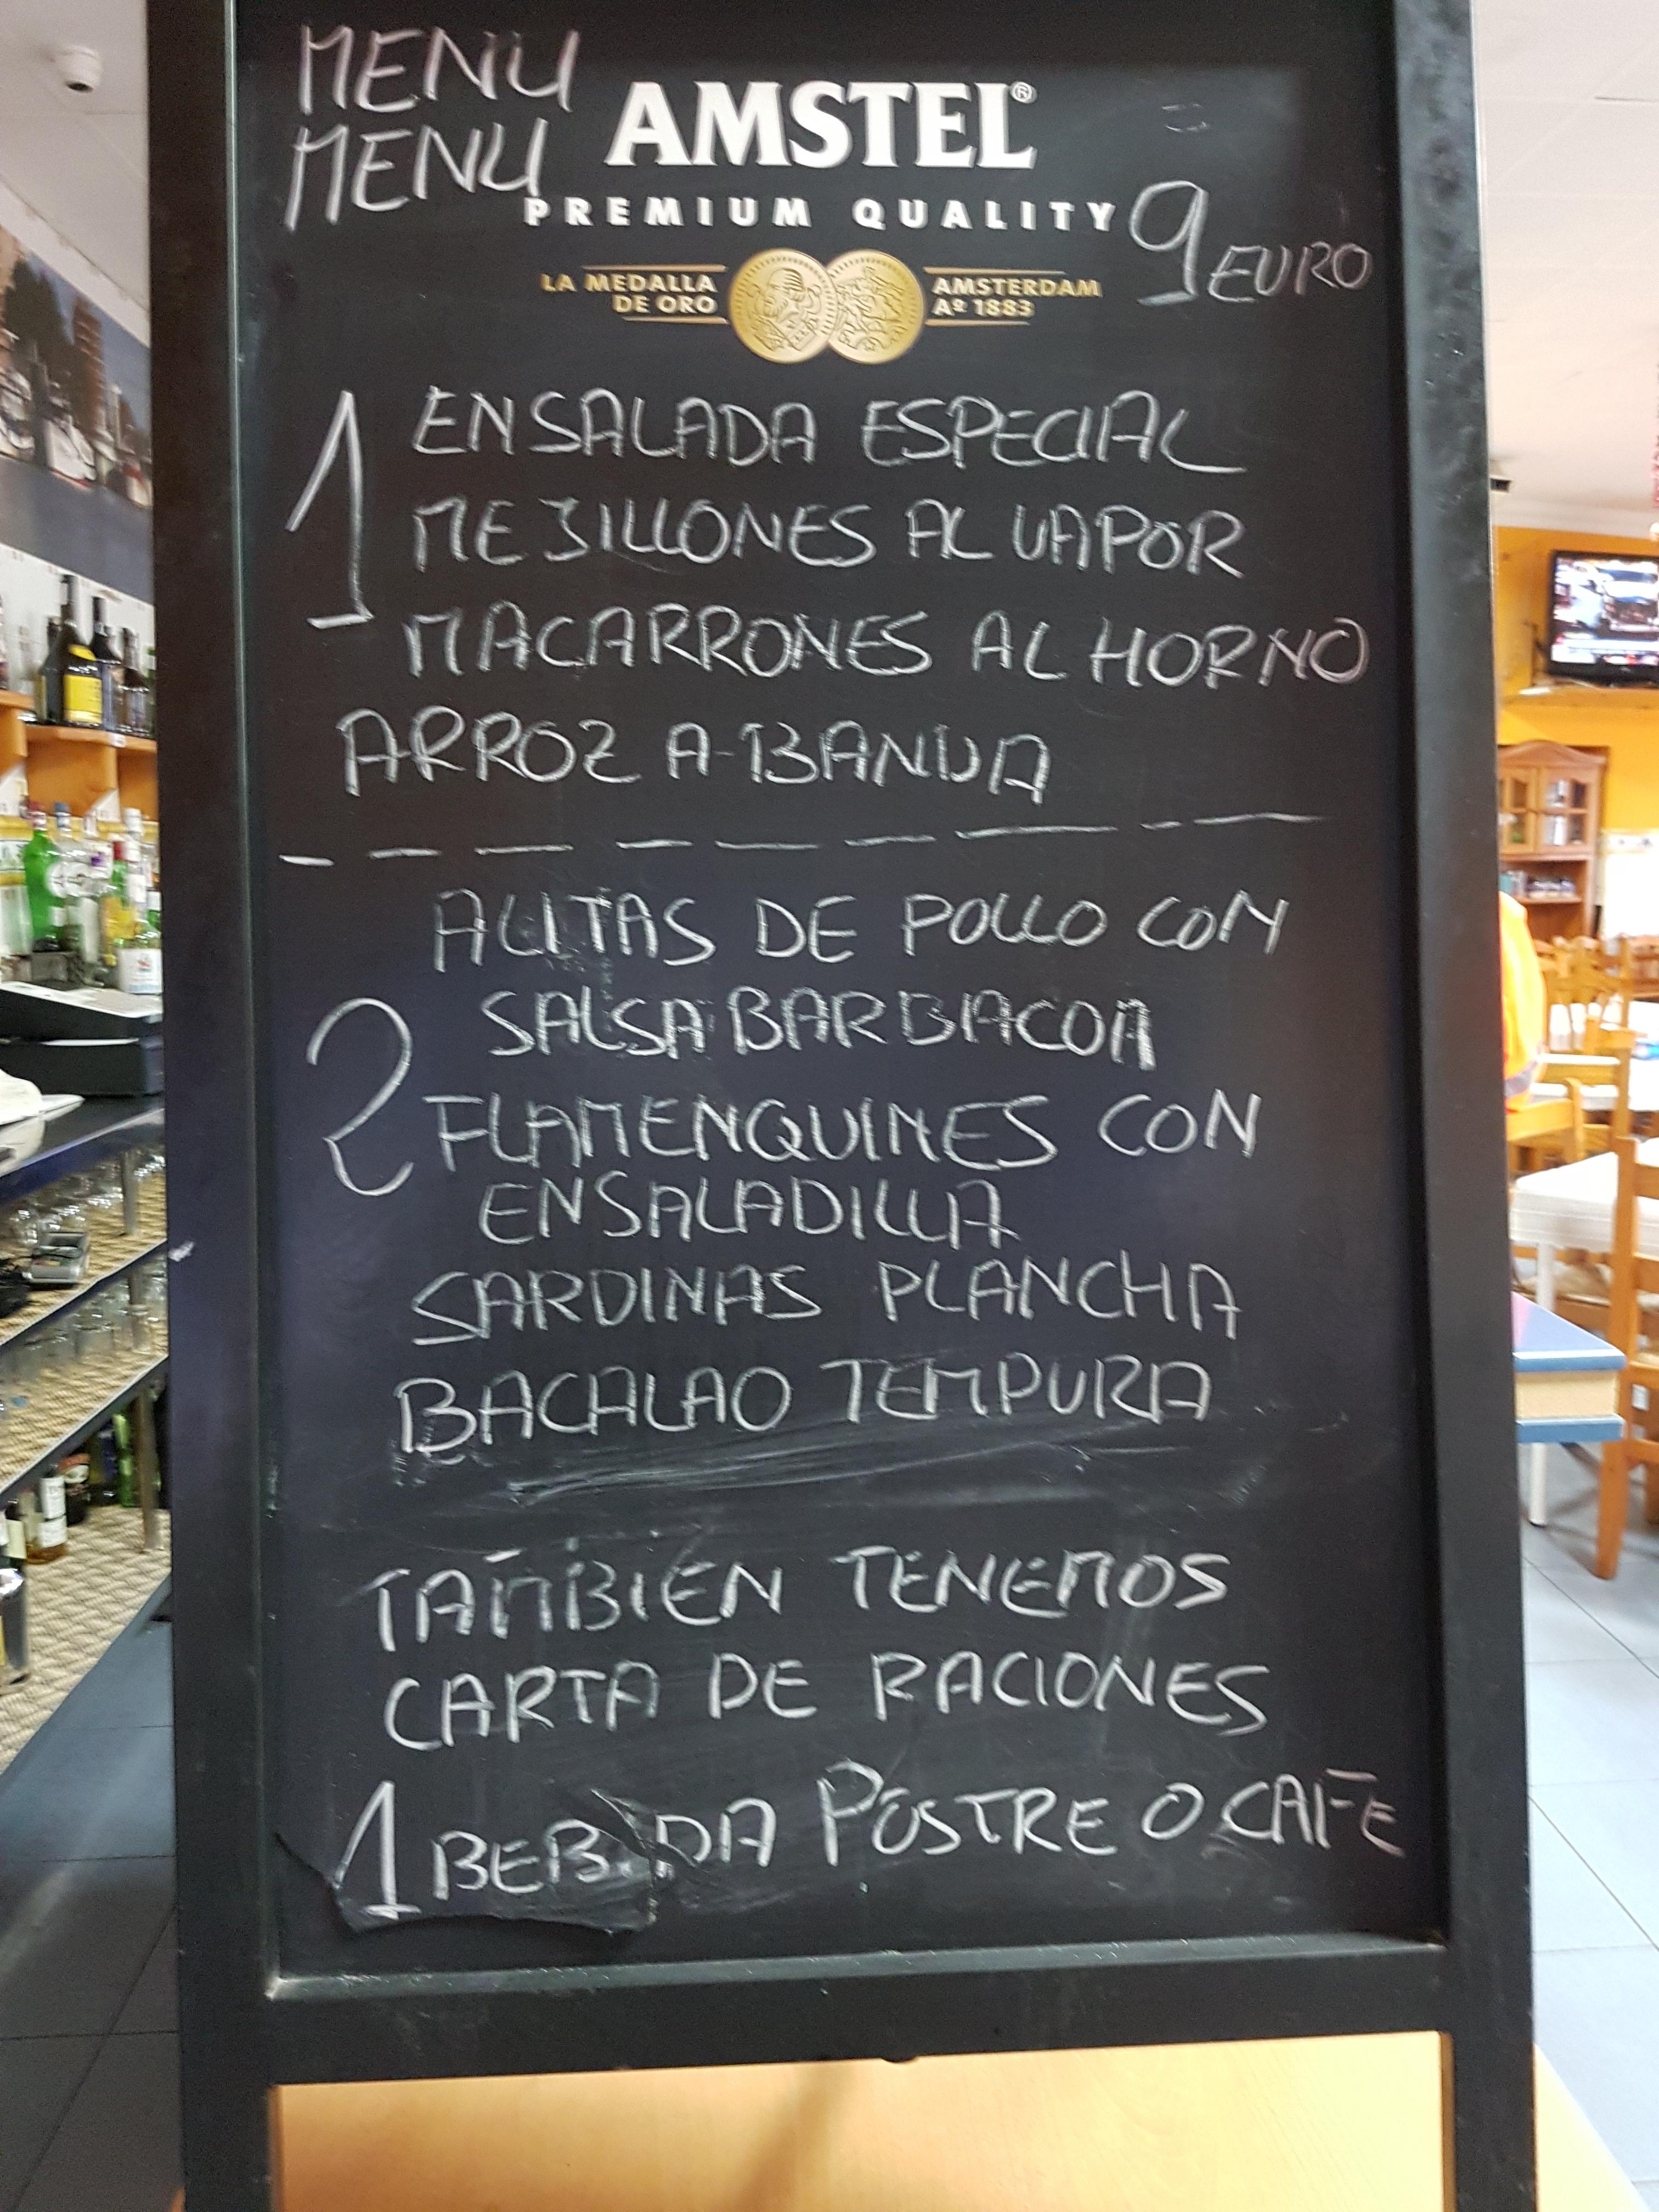 MENU
MENU
AMSTEL®
PREMIUM QUALITY
9 EURO
LA MEDALLA DE ORO
AMSTERDAM Aº 1883
1
ENSALADA ESPECIAL
MEJILLONES AL VAPOR
MACARRONES AL HORNO
ARROZ A-BANDA
2
ALITAS DE POLLO CON
SALSA BARBACOA
FLAMENQUINES CON
ENSALADILLA
SARDINAS PLANCHA
BACALAO TEMPURA
TAMBIEN TENEMOS
CARTA DE RACIONES
1 BEBIDA POSTRE O CAFE